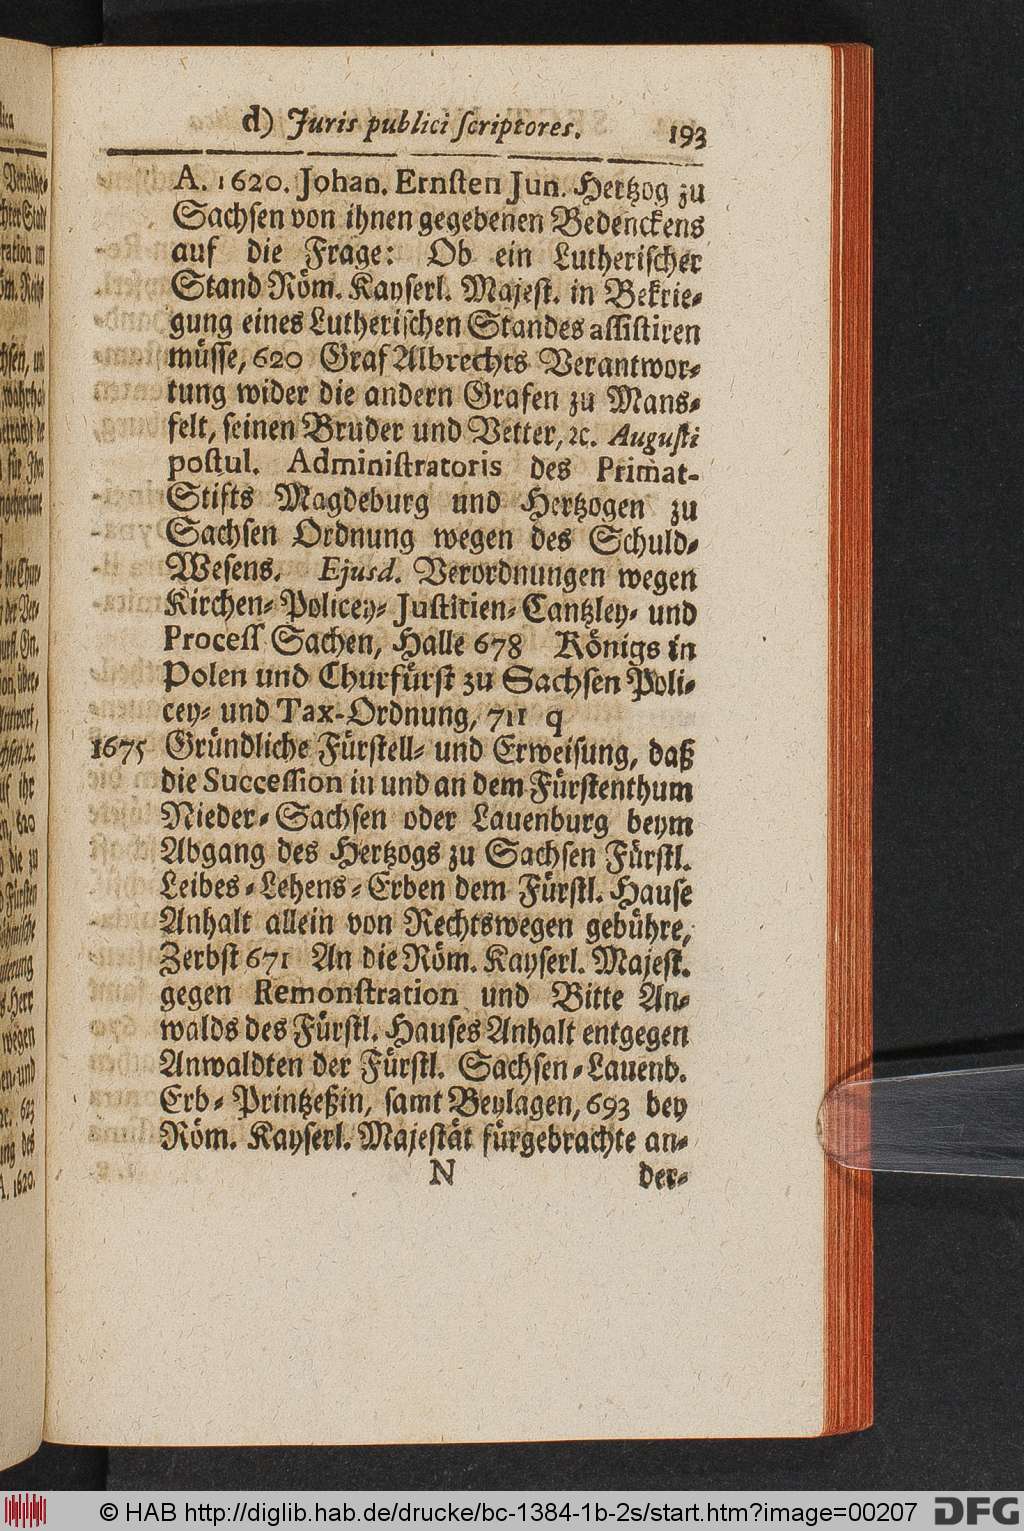 d) Juris publici ſcriptores. 193
A. 1620. Johan. Ernſten Jun. Hertzog zu
Sachſen von ihnen gegebenen Bedenckens
auf die Frage: Ob ein Lutheriſcher
Stand Röm. Kayſerl. Majeſt. in Bekrie⸗
gung eines Lutheriſchen Standes aſſiſtiren
müſſe, 620 Graf Albrechts Verantwor⸗
tung wider die andern Grafen zu Mans⸗
felt, ſeinen Bruder und Vetter, ꝛc. Auguſti
poſtul. Adminiſtratoris des Primat-
Stifts Magdeburg und Hertzogen zu
Sachſen Ordnung wegen des Schuld⸗
Weſens. Ejusd. Verordnungen wegen
Kirchen⸗ Policey⸗ Juſtitien⸗ Cantzley⸗ und
Proceſſ Sachen, Halle 678 Königs in
Polen und Churfürſt zu Sachſen Poli⸗
cey⸗ und Tax-Ordnung, 711 q
1675 Gründliche Fürſtell⸗ und Erweiſung, daß
die Succeſſion in und an dem Fürſtenthum
Nieder⸗Sachſen oder Lauenburg beym
Abgang des Hertzogs zu Sachſen Fürſtl.
Leibes⸗Lehens⸗Erben dem Fürſtl. Hauſe
Anhalt allein von Rechtswegen gebühre,
Zerbſt 671 An die Röm. Kayſerl. Majeſt.
gegen Remonſtration und Bitte An⸗
walds des Fürſtl. Hauſes Anhalt entgegen
Anwaldten der Fürſtl. Sachſen⸗Lauenb.
Erb⸗Printzeßin, ſamt Beylagen, 693 bey
Röm. Kayſerl. Majeſtät fürgebrachte an⸗
N der⸗
© HAB http://diglib.hab.de/drucke/bc-1384-1b-2s/start.htm?image=00207 DFG